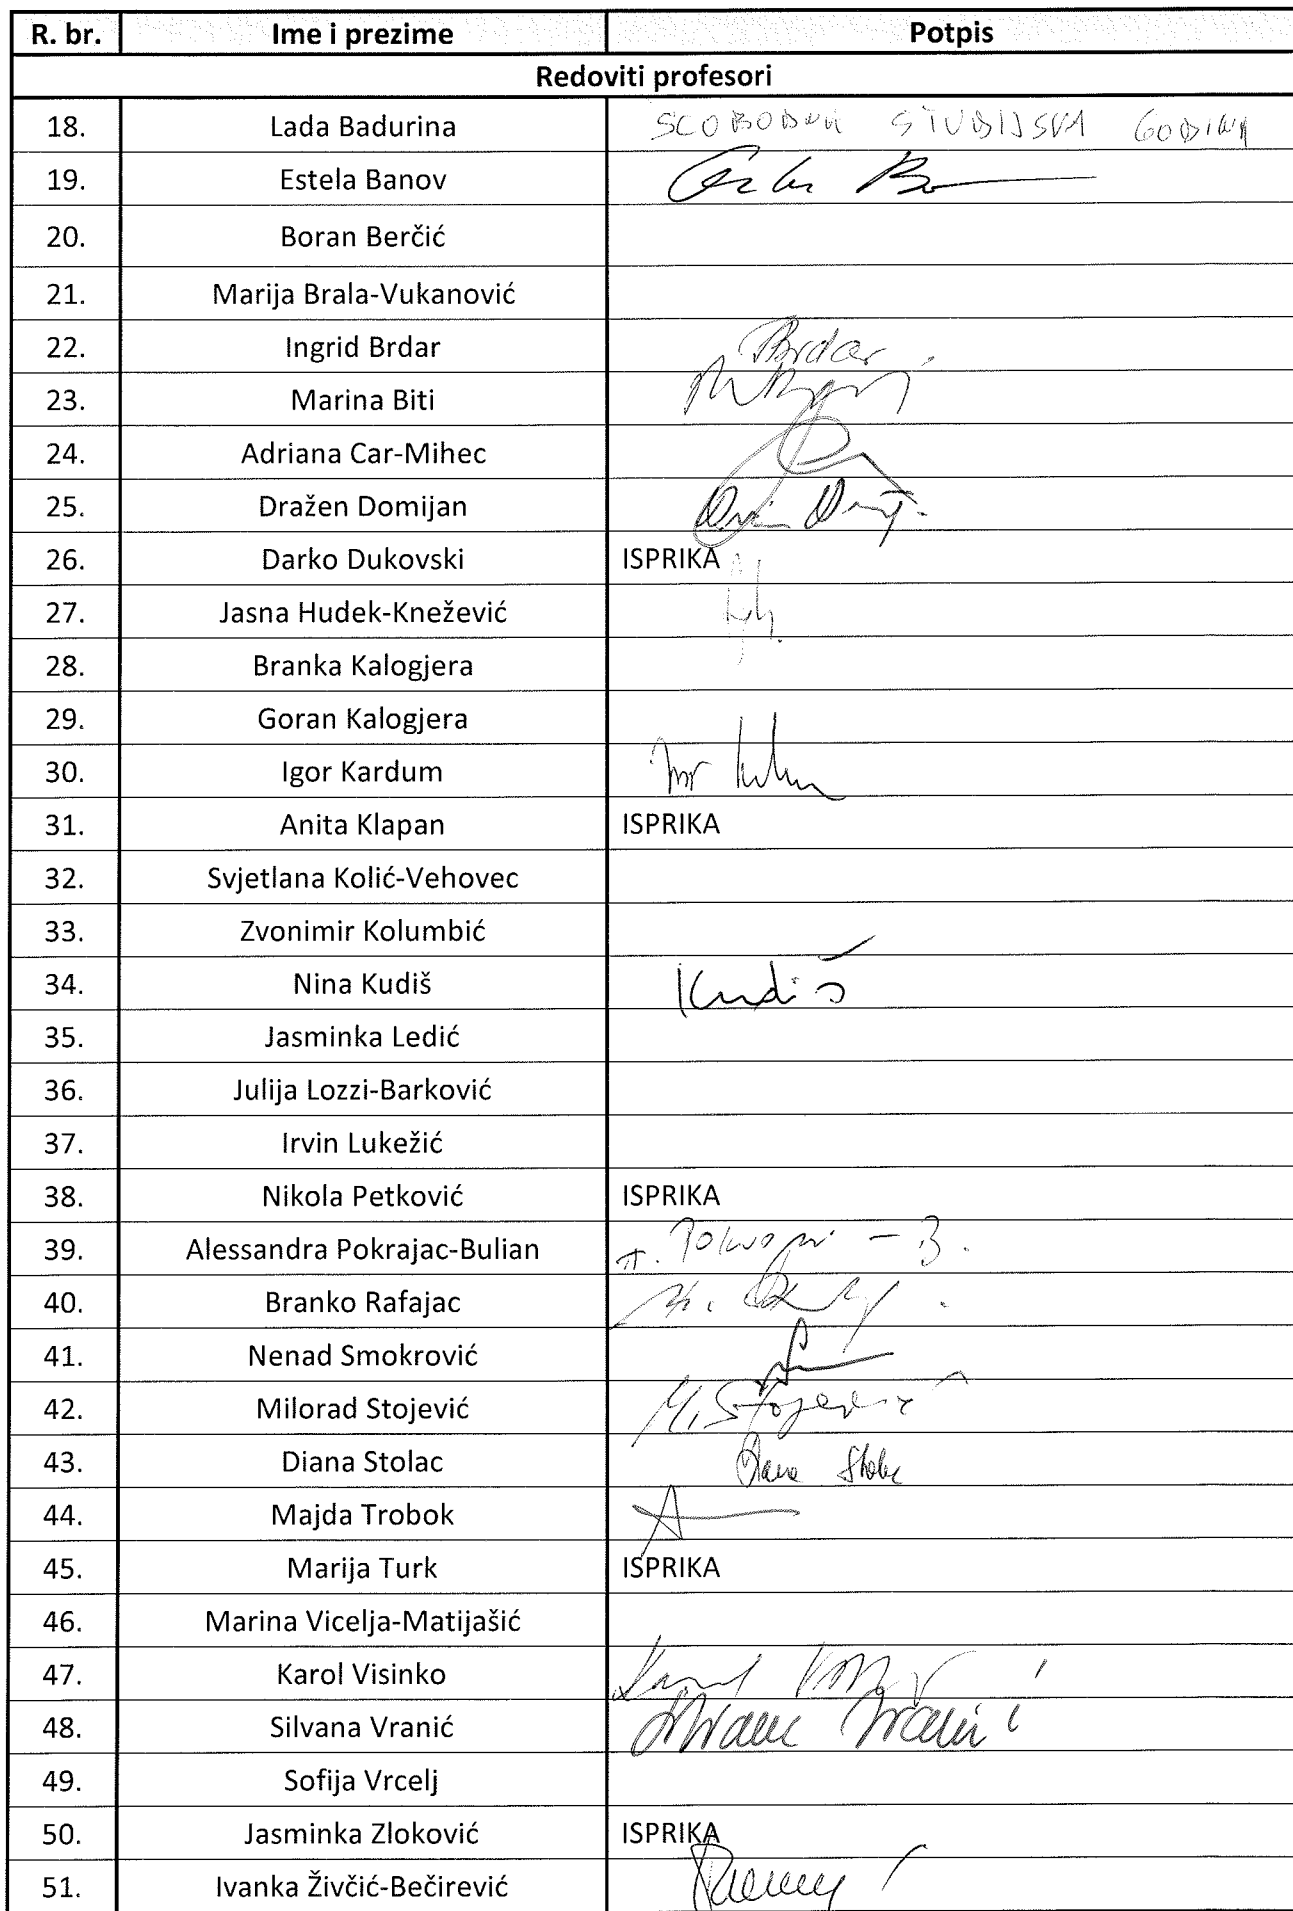 R. br. Ime i prezime Potpis
Redoviti profesori
18. Lada Badurina SLOBODNA STUDIJSKA GODINA
19. Estela Banov
20. Boran Berčić
21. Marija Brala-Vukanović
22. Ingrid Brdar Brdar
23. Marina Biti
24. Adriana Car-Mihec
25. Dražen Domijan
26. Darko Dukovski ISPRIKA
27. Jasna Hudek-Knežević
28. Branka Kalogjera
29. Goran Kalogjera
30. Igor Kardum
31. Anita Klapan ISPRIKA
32. Svjetlana Kolić-Vehovec
33. Zvonimir Kolumbić
34. Nina Kudiš Kudiš
35. Jasminka Ledić
36. Julija Lozzi-Barković
37. Irvin Lukežić
38. Nikola Petković ISPRIKA
39. Alessandra Pokrajac-Bulian
40. Branko Rafajac
41. Nenad Smokrović
42. Milorad Stojević M. Stojević
43. Diana Stolac Diana Stolac
44. Majda Trobok
45. Marija Turk ISPRIKA
46. Marina Vicelja-Matijašić
47. Karol Visinko
48. Silvana Vranić Silvana Vranić
49. Sofija Vrcelj
50. Jasminka Zloković ISPRIKA
51. Ivanka Živčić-Bečirević